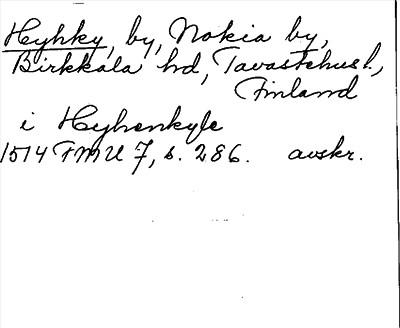 Heyhky, by, Nokia by,
Birkkala hd, Tavastehusl.,
Finland
i Heyhenkyle
1514 FMU 7, s. 286. avskr.